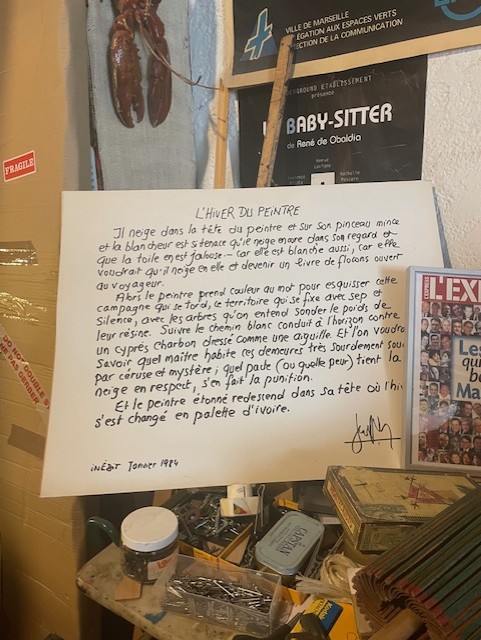 VILLE DE MARSEILLE
ÉGATION AUX ESPACES VERTS
RECTION DE LA COMMUNICATION
RGROUND ETABLISSEMENT
présente
BABY-SITTER
de René de Obaldia
FRAGILE
L'HIVER DU PEINTRE
Il neige dans la tête du peintre et sur son pinceau mince
et la blancheur est si tenace qu'il neige encore dans son regard et
que la toile en est jalouse – car elle est blanche aussi, car elle
voudrait qu'il neige en elle et devenir un livre de flocons ouvert
au voyageur.
Alors le peintre prend couleur au mot pour esquisser cette
campagne qui se tord, ce territoire qui se fixe avec sep et
silence, avec les arbres qu'on entend sonder le poids de
leur résine. Suivre le chemin blanc conduit à l'horizon contre
un cyprès charbon dressé comme une aiguille. Et l'on voudra
savoir quel maître habite ces demeures très sourdement sou
par céruse et mystère ; quel pacte (ou quelle peur) tient la
neige en respect, s'en fait la punition.
Et le peintre étonné redescend dans sa tête où l'hi
s'est changé en palette d'ivoire.
INÉDIT Janvier 1984
L'EXPRESS
L'EX
Les
qui
Ma
CAPSTAN
Kodak